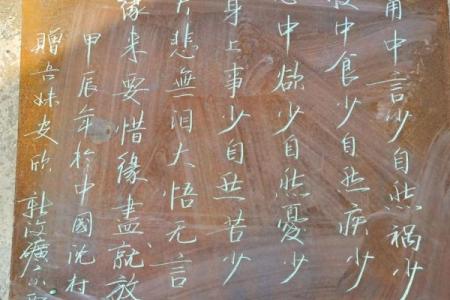 中言少自然禍少
中食少自然疾少
中欲少自然憂少
身上事少自然苦少
悲無泪大悟无言
缘来要惜缘盡就放
甲辰年於中國沈村
贈吾妹安欣 新汶礦